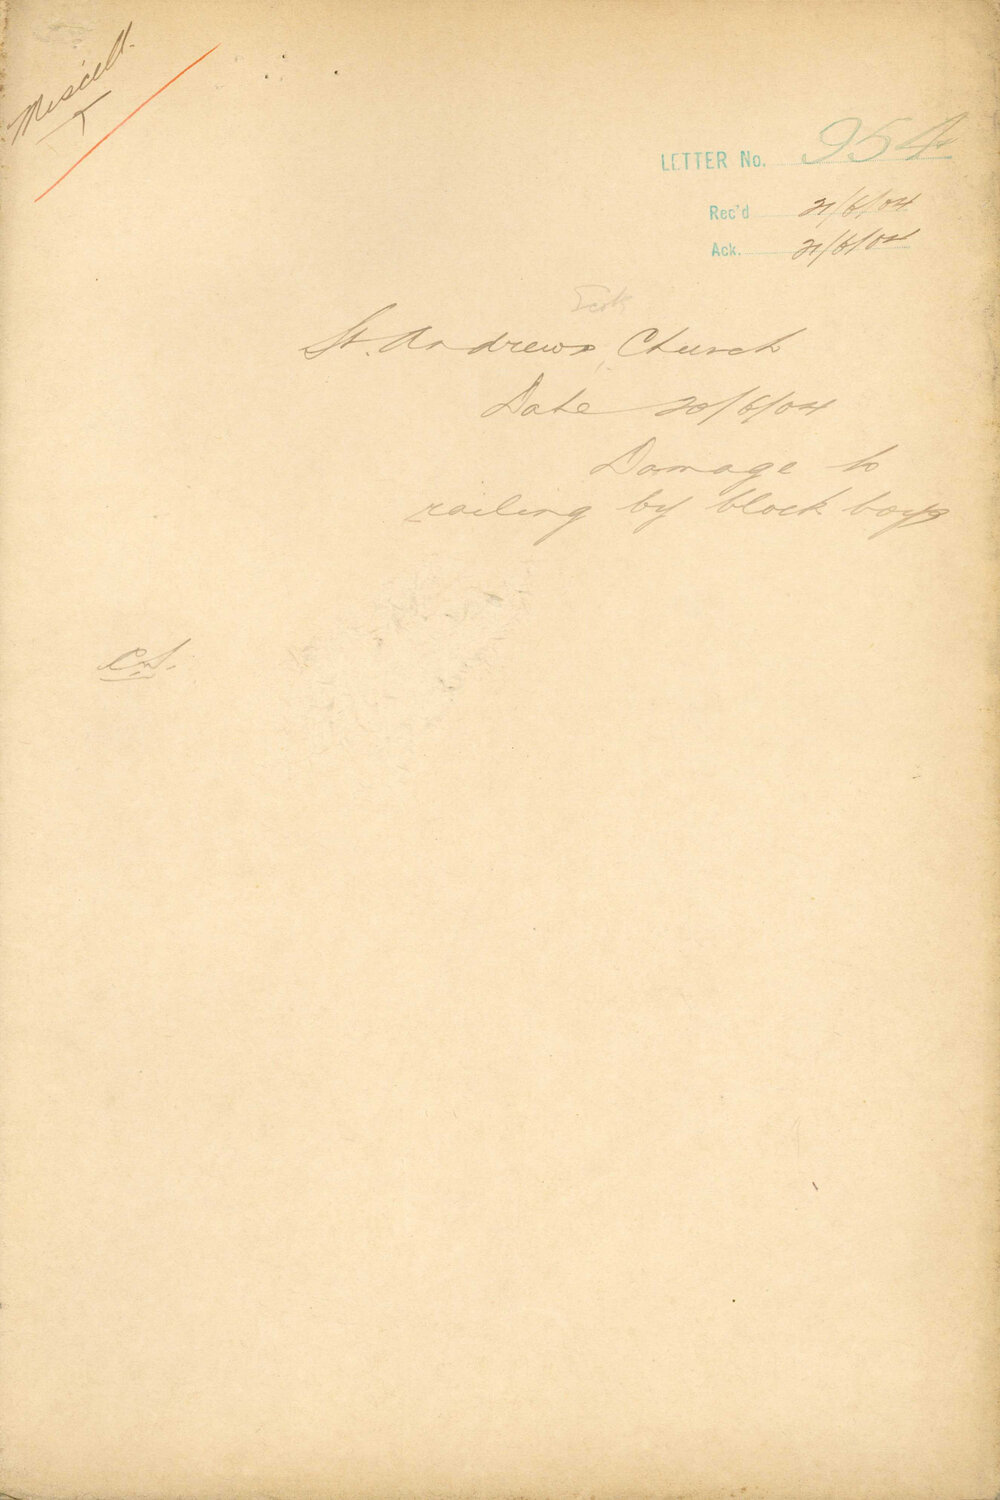 Miscell.
LETTER No. 954
Rec'd 21/6/04
Ack. 21/6/04
St. Andrews Church
Date 20/6/04
Damage to
railing by block boys